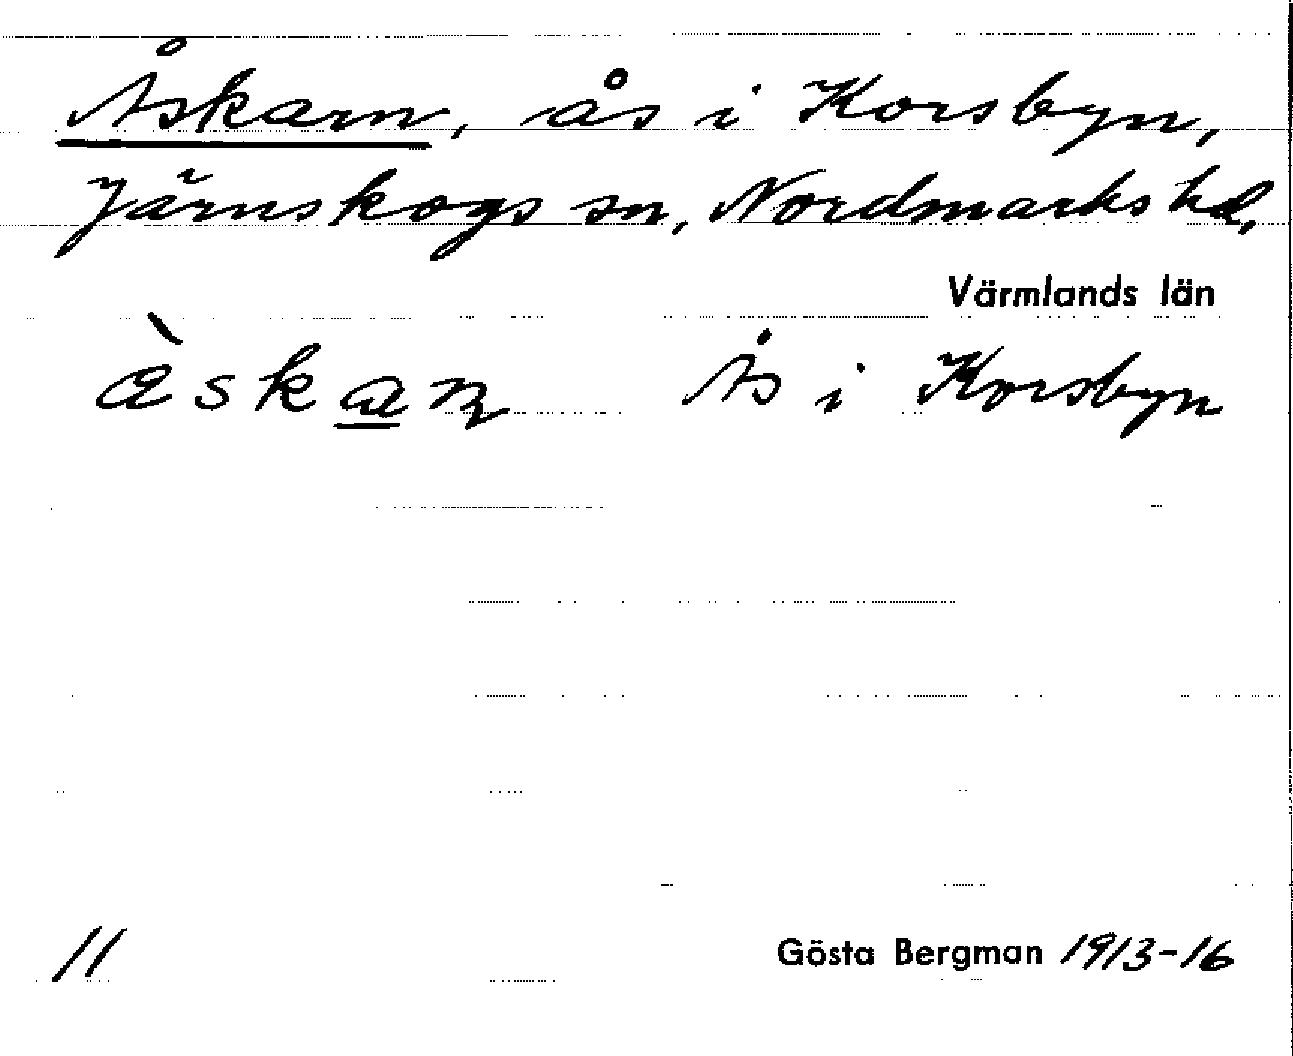 Åskarn, ås i Korsbyn,
Järnskogs sn, Nordmarks hd,
Värmlands län
àskaṉ Ås i Korsbyn
11 Gösta Bergman 1913-16